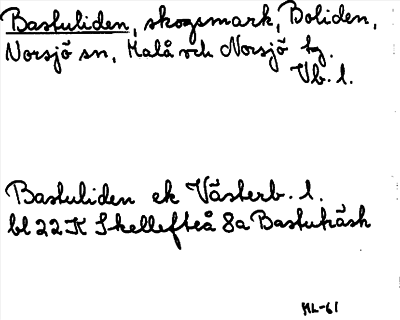 Bastuliden, skogsmark, Boliden,
Norsjö sn, Malå och Norsjö tg.
Vb. l.
Bastuliden ek Västerb. l.
bl 22 K Skellefteå 8a Bastuträsk
ML-61